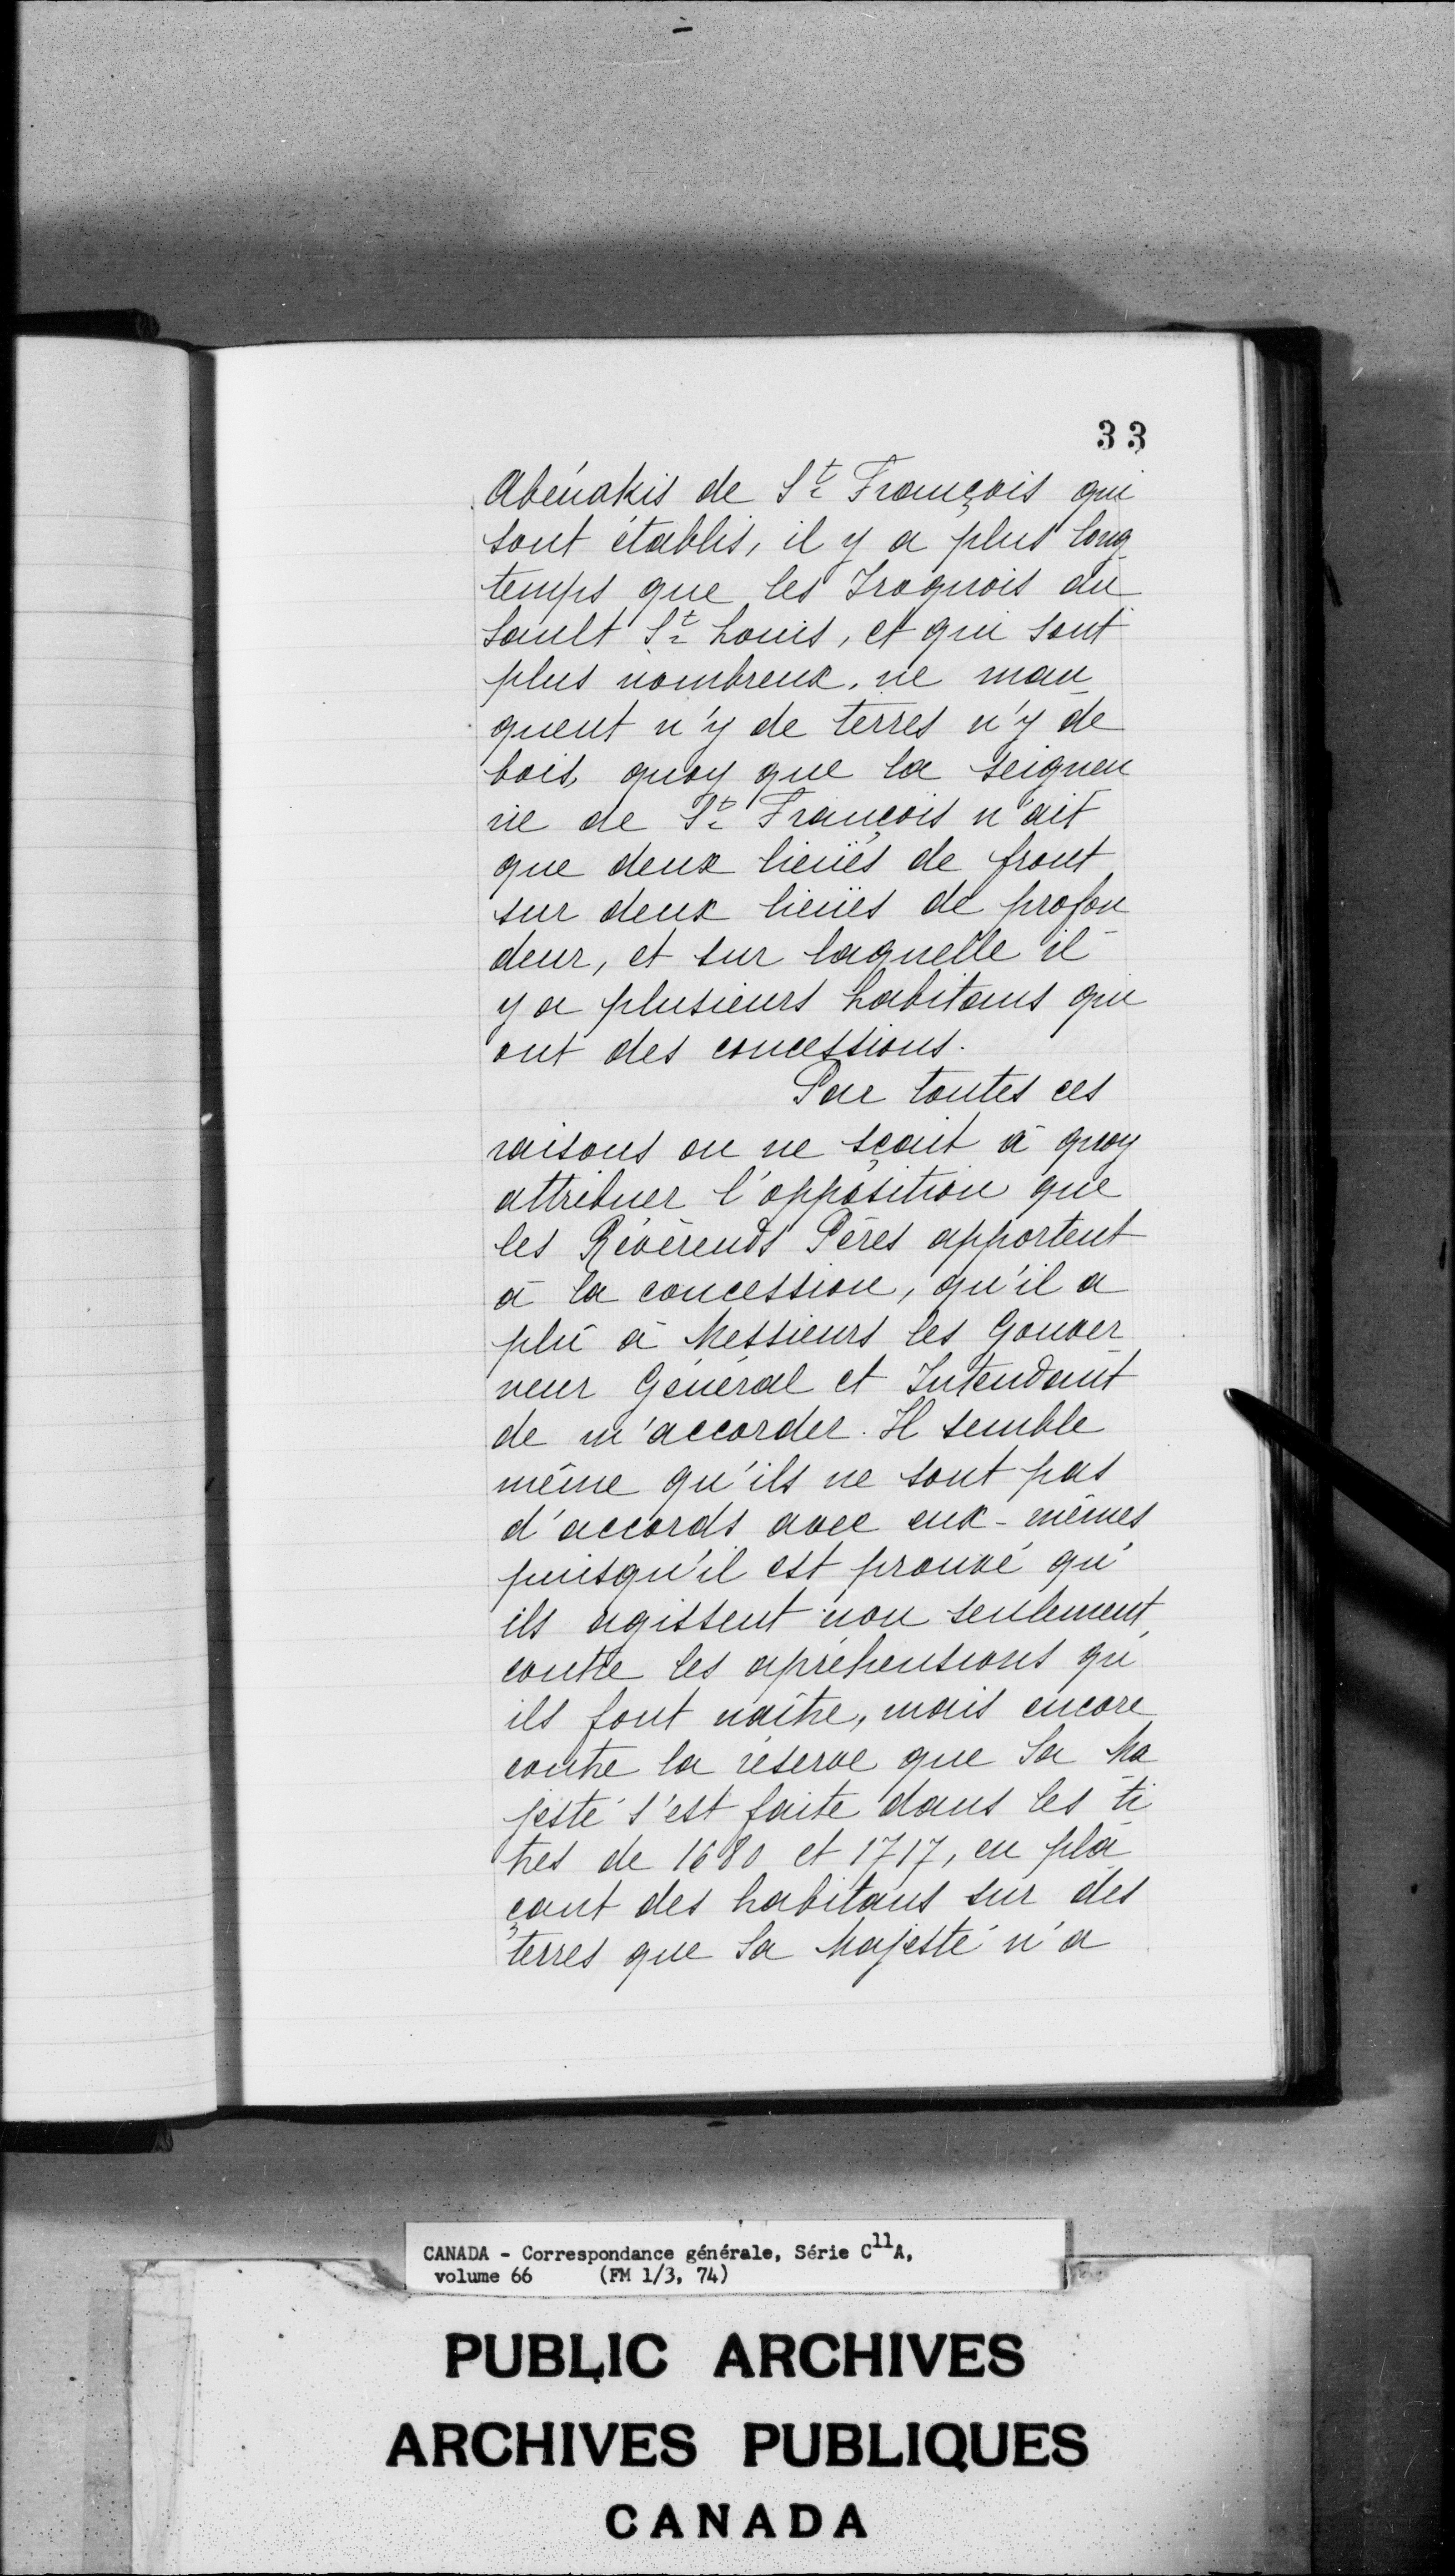 33
Abénakis de St. François qui
sont établis, il y a plus long
temps que les Iroquois du
Sault St. Louis, et qui sont
plus nombreux, ne man
quent n'y de terres n'y de
bois, quoy que la seigneu
rie de St. François n'ait
que deux lieües de front
sur deux lieües de profon
deur, et sur laquelle il
y a plusieurs habitans qui
ont des concessions.
Par toutes ces
raisons on ne sçait à quoy
attribuer l'opposition que
les Révérends Pères apportent
à la concession, qu'il a
plû à Messieurs les Gouver
neur Général et Intendant
de m'accorder. Il semble
même qu'ils ne sont pas
d'accords avec eux-mêmes
puisqu'il est prouvé qu'
ils agissent non seulement
contre les apréhensions qu'
ils font naître, mais encore
contre la réserve que Sa Ma
jesté s'est faite dans les ti
tres de 1680 et 1717, en pla
çant des habitans sur des
terres que Sa Majesté n'a
CANADA - Correspondance générale, Série C11A,
volume 66 (FM 1/3, 74)
PUBLIC ARCHIVES
ARCHIVES PUBLIQUES
CANADA